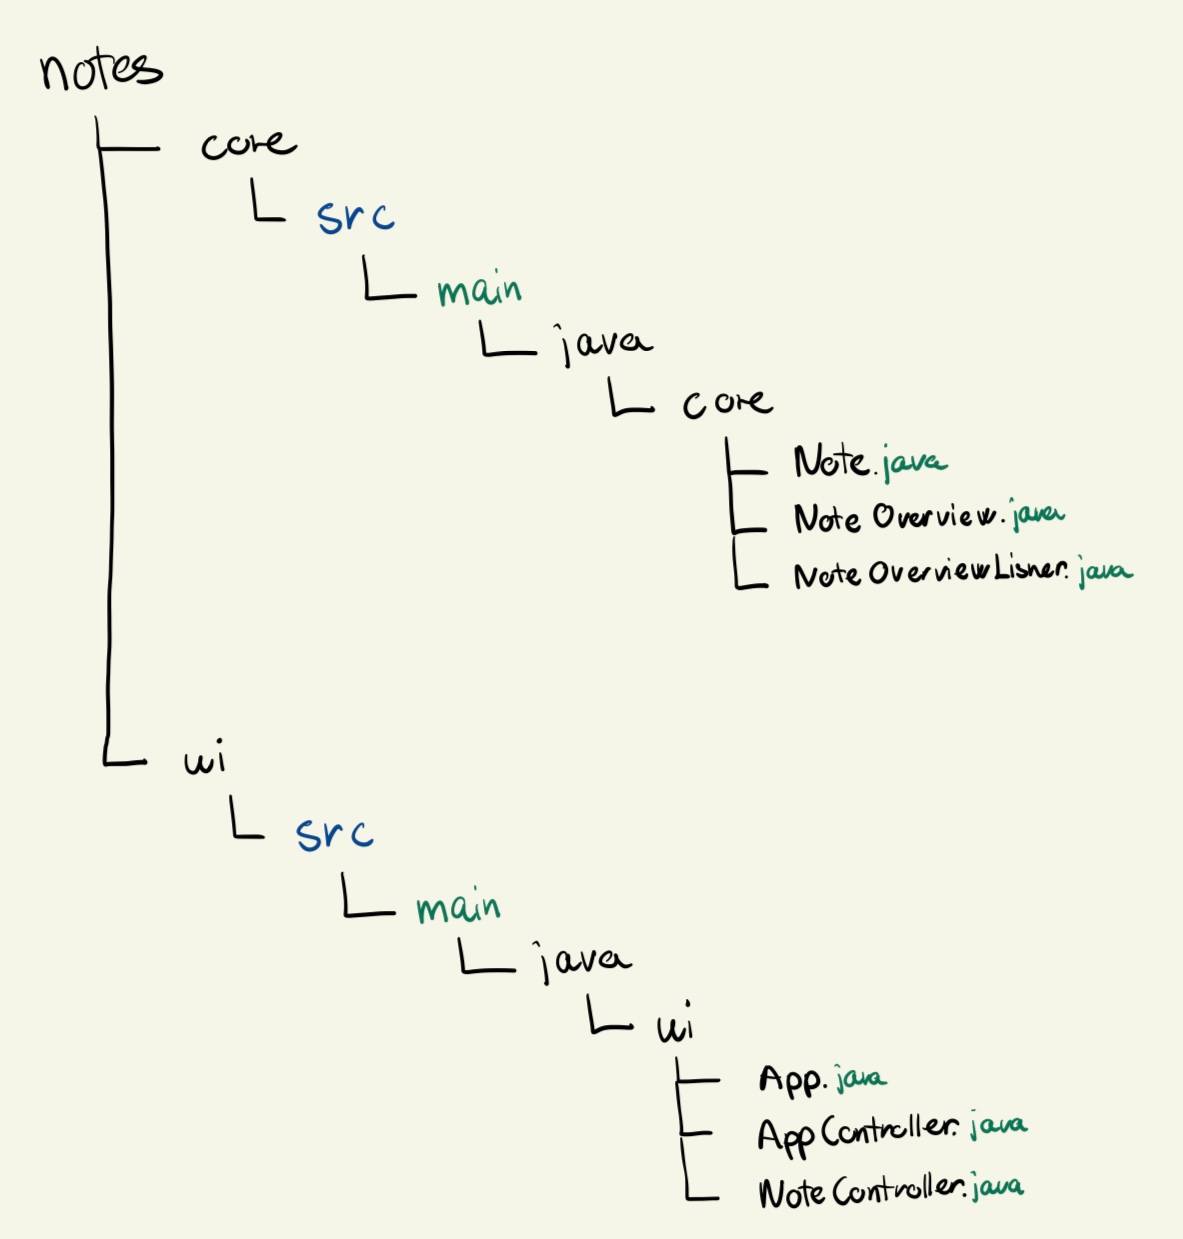 notes
core
src
main
java
core
Note.java
Note Overview.java
Note OverviewLisner.java
ui
src
main
java
ui
App.java
App Controller.java
Note Controller.java